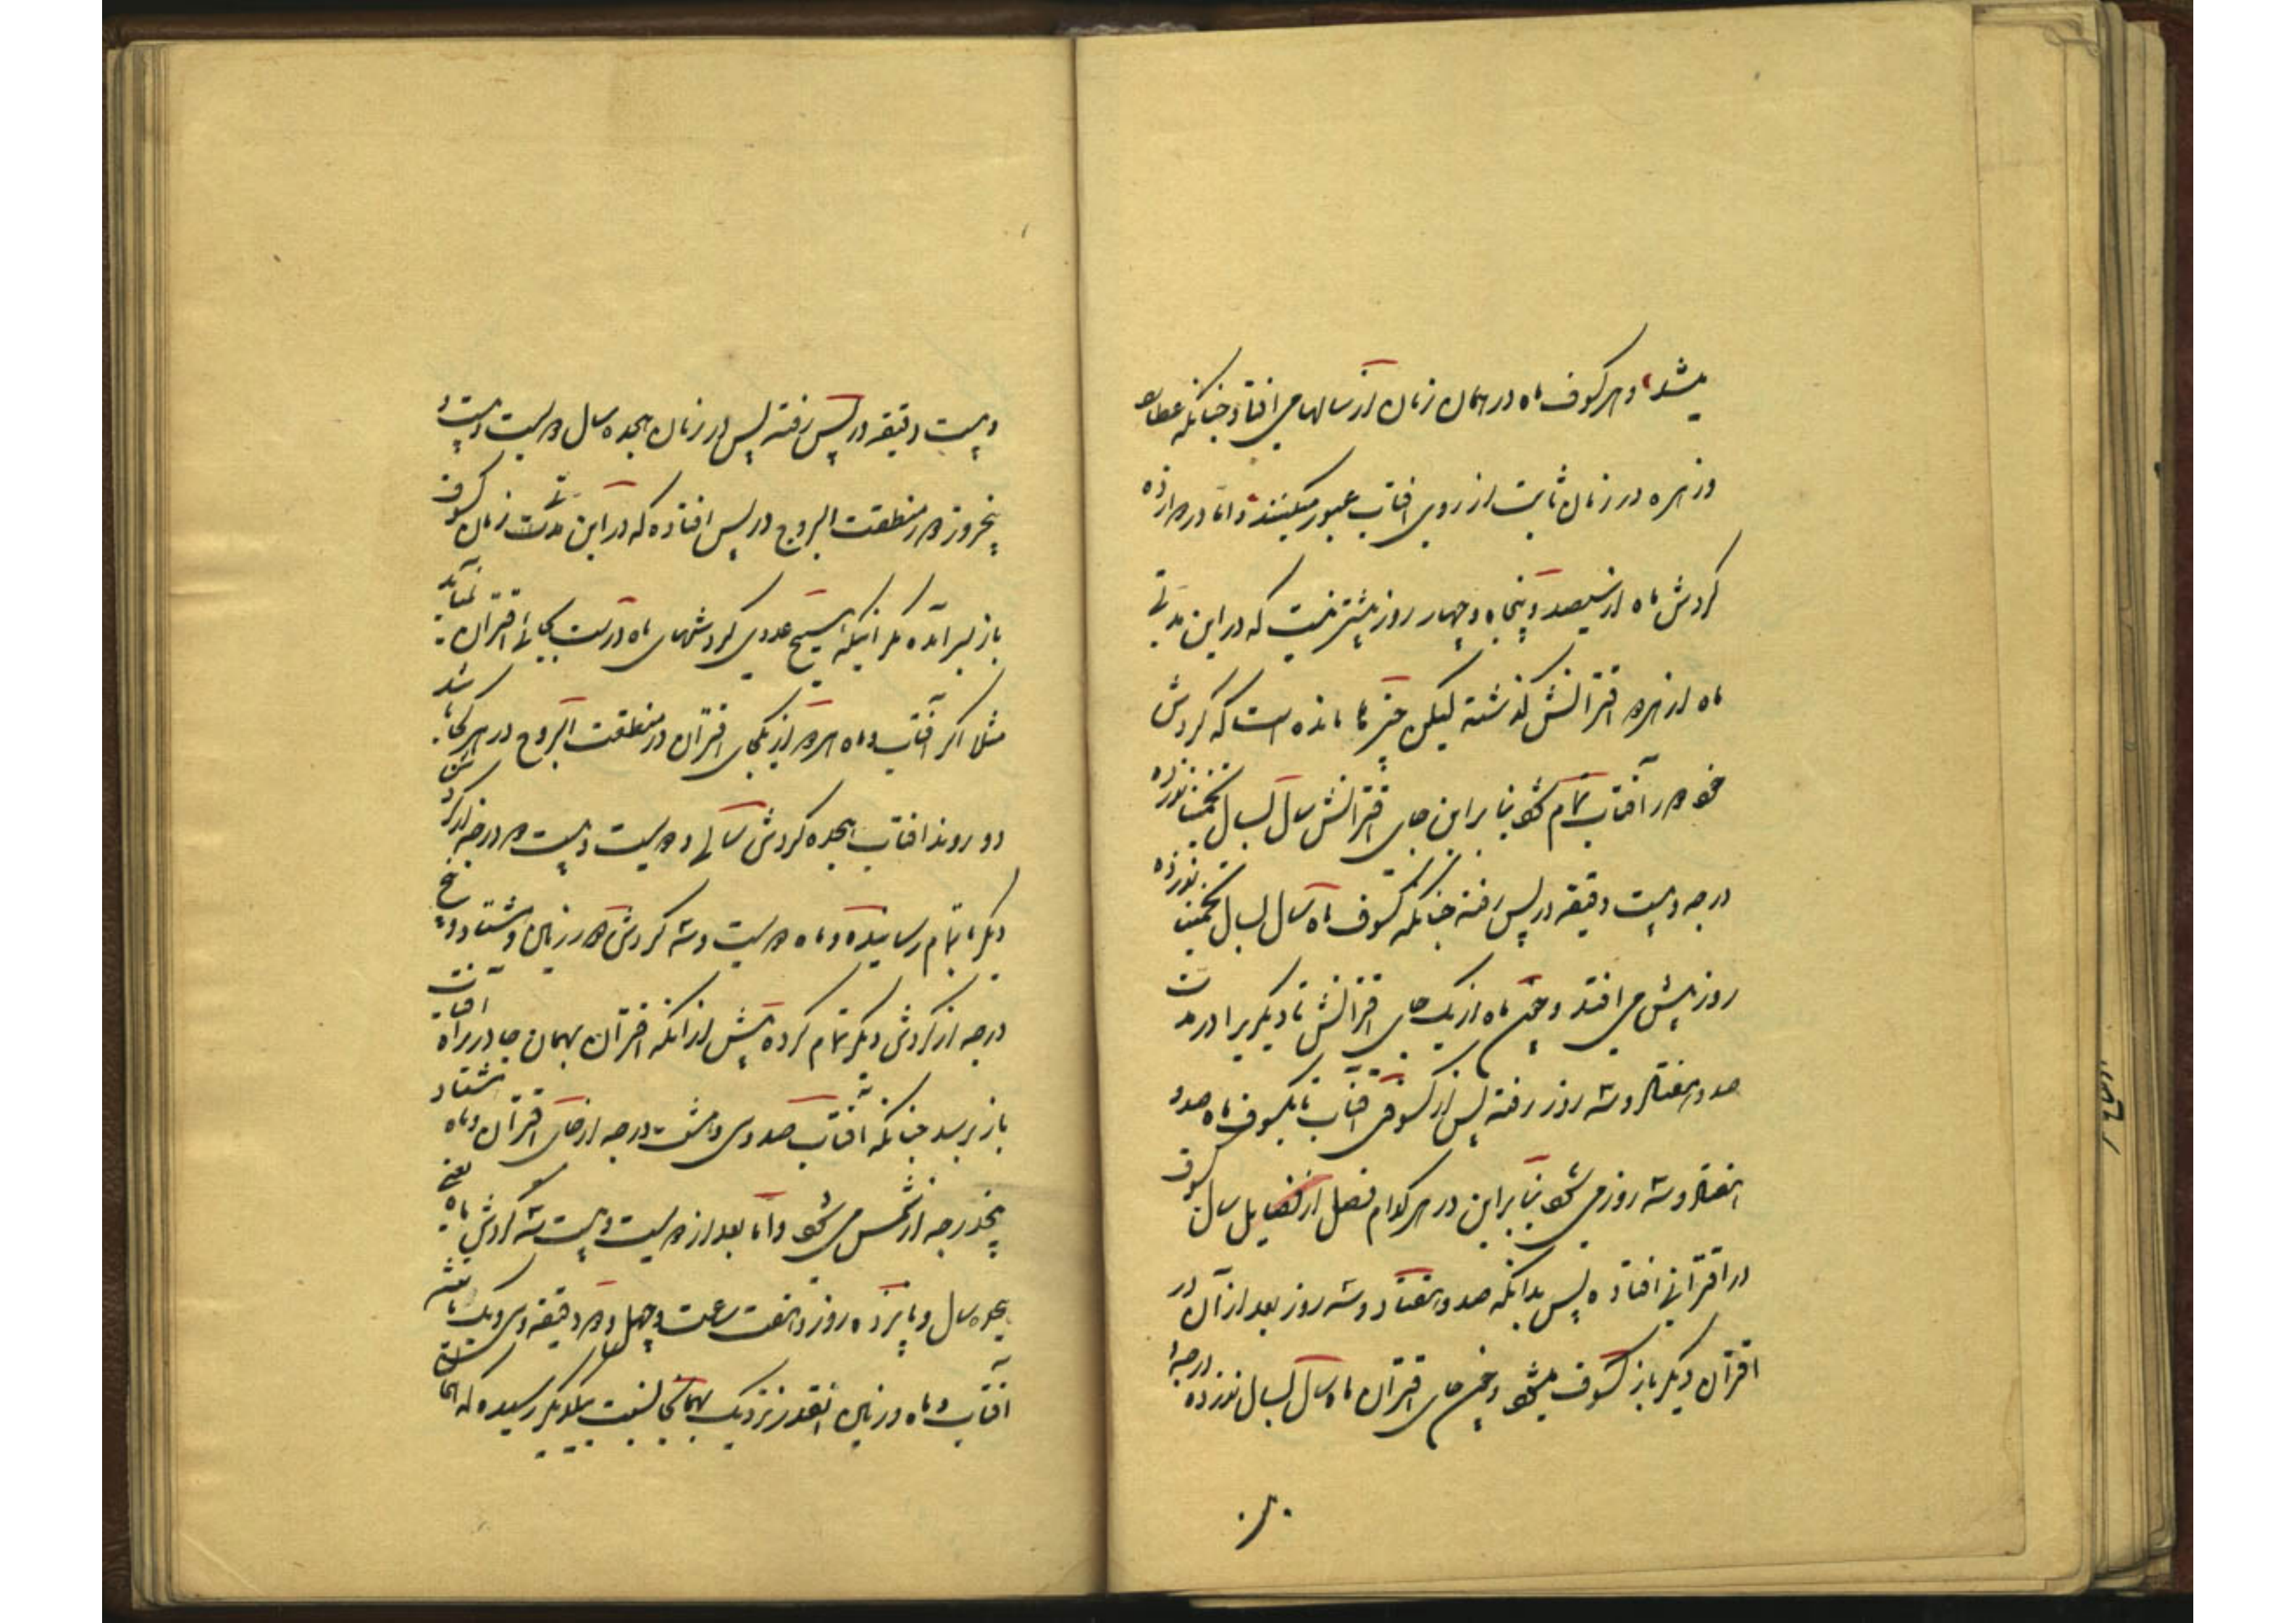 میشد و هر کسوف ماه در همان زمان از سالها می افتاد چنانکه عطارد
و زهره در زمان ثابت از روی افتاب عبور میکنند و اما در
کردش ماه از سیصد و پنجاه و چهار روز بیشتر نیست که در این مدتی
ماه از هر اقترانش گذشته لیکن چیزی مانده است که کردش
خود در آفتاب تمام شود بنا براین جای اقترانش سال بسال تخمیناً نوزده
درجه و بیست دقیقه در پس رفته چنانکه کسوف ماه سال بسال تخمیناً نوزده
روز پیش می افتد و چون ماه از یک جای اقترانش تا دیگریرا در مدت
صد و هفتاد و سه روز رفته پس از کسوف افتاب تا بکسوف ماه صد و
هفتاد و سه روز می شود بنا براین در هر کدام فصل از فصایل سال کسوف
در اقترانی افتاده پس بدانکه صد و هفتاد و سه روز بعد از آن در
اقتران دیگر باز کسوف میشود و چون جای اقتران ماه سال بسال نوزده درجه و
بیست دقیقه در پس رفته پس در زمان هجده سال و دویست و بیست و
پنجروز در منطقت البروج در پس افتاده که در این مدت زمان کسوف
باز بسر آمده مگر اینکه هیچ عددی کردشهای ماه درست بجای اقتران نمیاید
مثلا اگر آفتاب و ماه هر دو از یکجای اقتران در منطقت البروج در هر کجا باشد
دو روند افتاب هجده کردش سالی و دویست و بیست و دو درجه از کردش
دیگر باتمام رسانیده و ماه دویست و سه کردش و در زمان و هشتاد و پنج
درجه از کردش دیگر تمام کرده پیش از انکه اقتران بهمان جا در راه آفتاب
باز برسد چنانکه آفتاب صد و سی و هشت درجه از جای اقتران و ماه هشتاد
پنجدرجه از شمس می شود و اما بعد از دویست و بیست و سه کردش ماه یعنی
هجده سال و پانزده روز و هفت ساعت و چهل و دو دقیقه و سی و یک ثانیه
آفتاب و ماه و زمین انقدر نزدیک بهمانجا نسبت بیکدیگر رسیده که